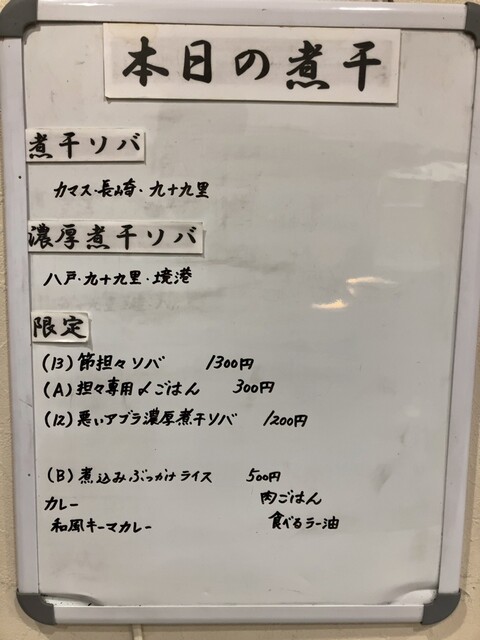 本日の煮干
煮干ソバ
カマス・長崎・九十九里
濃厚煮干ソバ
八戸・九十九里・境港
限定
(13)節担々ソバ 1300円
(A)担々専用〆ごはん 300円
(12)悪いアブラ濃厚煮干ソバ 1200円
(B)煮込みぶっかけライス 500円
カレー 肉ごはん
和風キーマカレー 食べるラー油